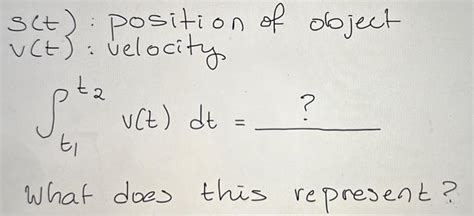 s(t) : position of object
v(t) : velocity
∫_{t1}^{t2} v(t) dt = ?
What does this represent?